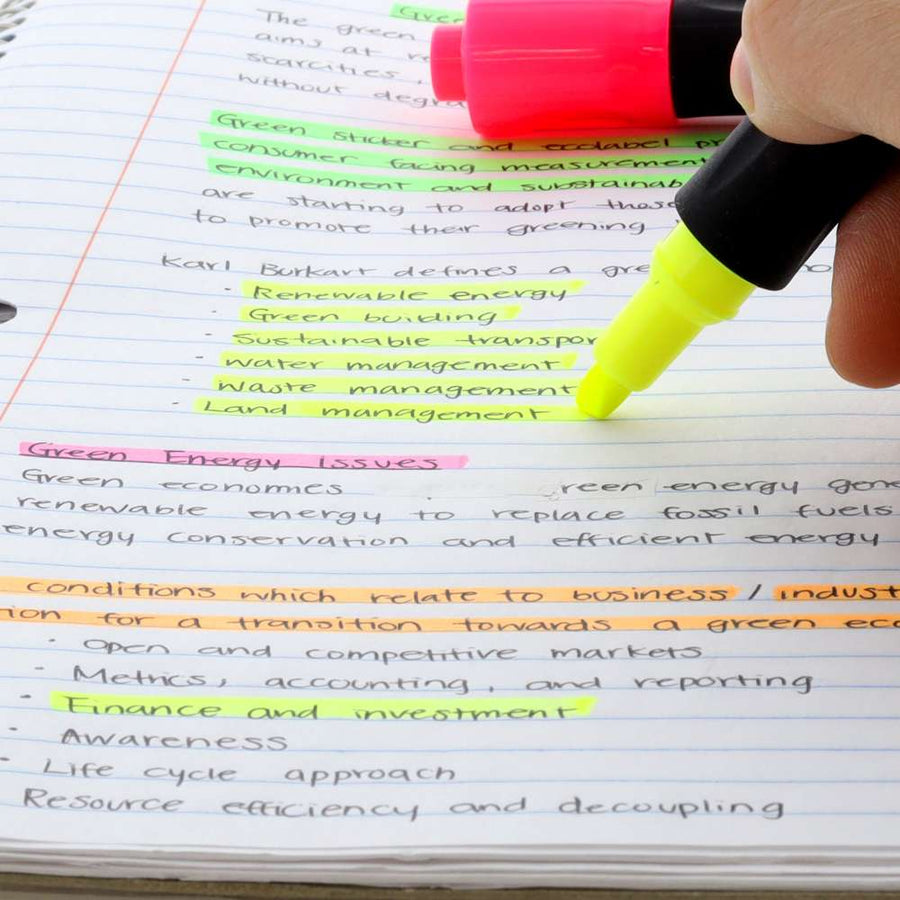 The green
aims at
scarcities,
without
Green sticker and ecolabel
consumer facing measurement
environment and substainab
are starting to adopt
to promote their greening
Karl Burkart defines a
- Renewable energy
- Green building
- Sustainable transpor
- Water management
- Waste management
- Land management
Green Energy Issues
Green economies reen energy gene
renewable energy to replace fossil fuels
energy conservation and efficient energy
conditions which relate to business / indust
ion for a transition towards a green eco
- Open and competitive markets
- Metrics, accounting, and reporting
- Finance and investment
- Awareness
- Life cycle approach
Resource efficiency and decoupling